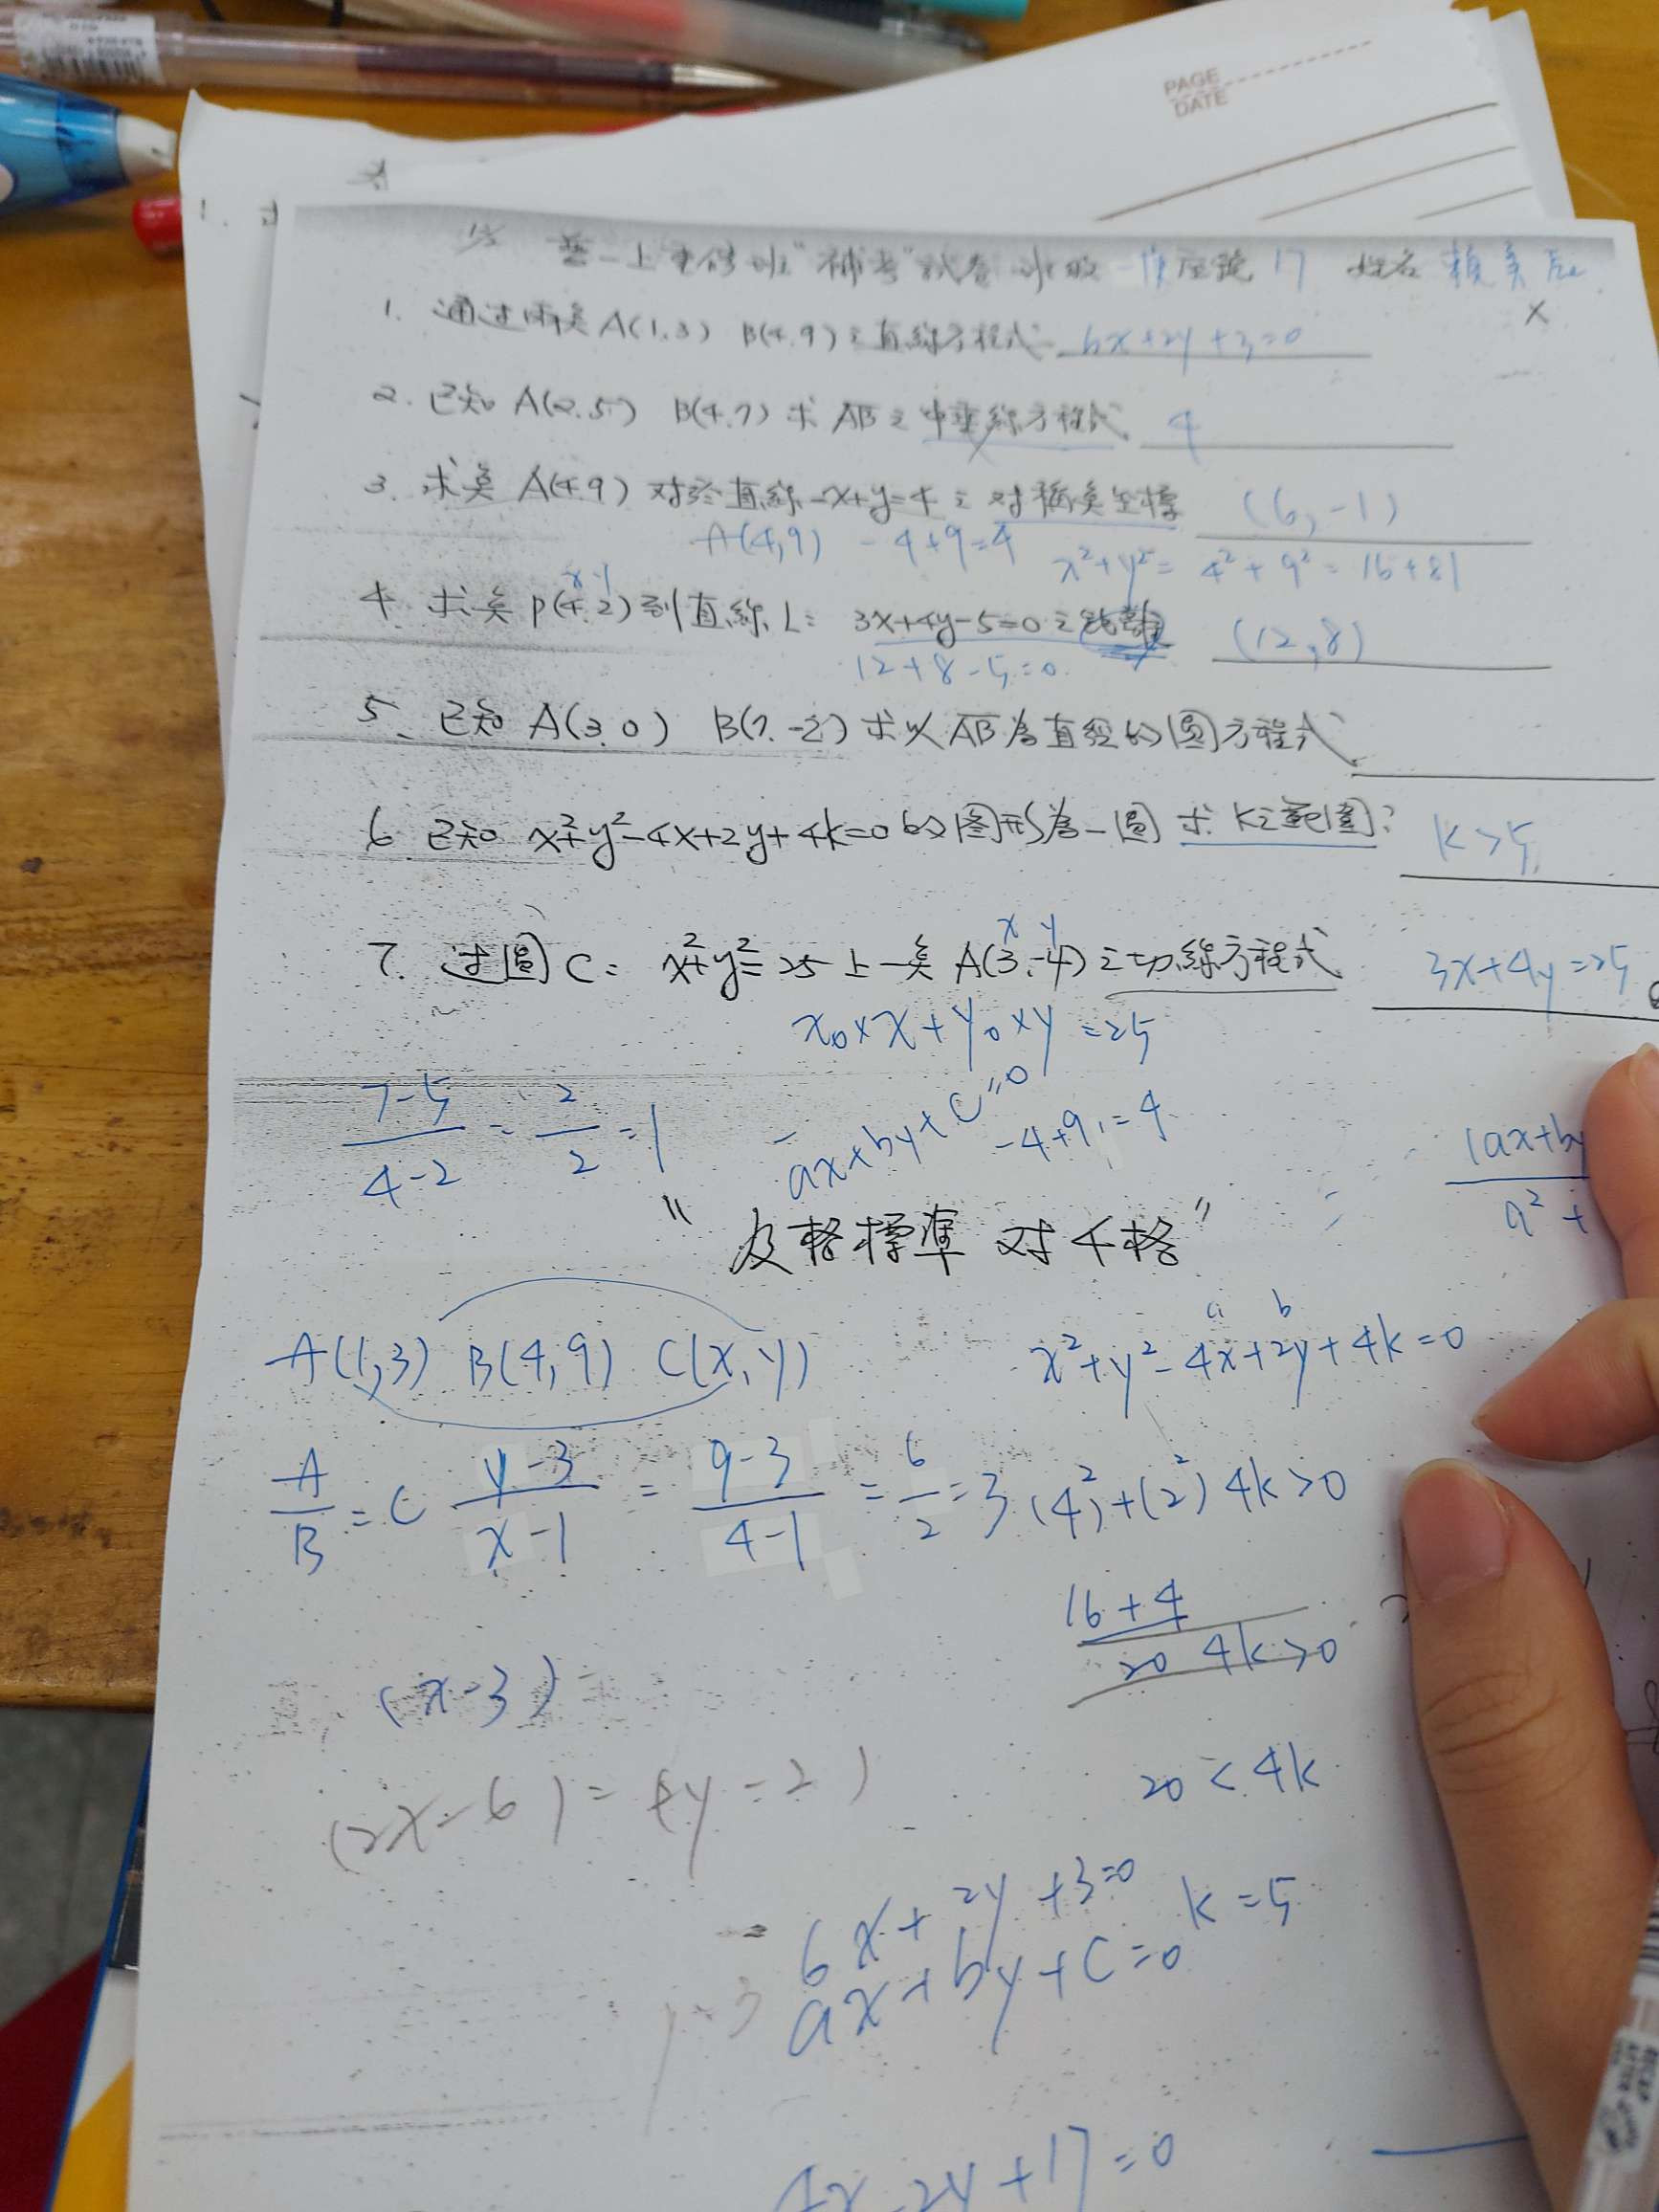 PAGE
DATE
普一上重修班"補考"試卷 班級 座號 17 姓名
1. 通过兩奌 A(1.3) B(4.9)之直線方程式 6x+2y+3=0
2. 已知 A(2.5) B(4.7) 求 AB之中垂線方程式 4
3. 求奌 A(4.9) 对於直線 -x+y=4之对稱奌坐標 (6,-1)
A(4,9) -4+9=4 x²+y²= 4²+9²=16+81
x y
4. 求奌 P(4.2) 到直線 L: 3x+4y-5=0之距離 (12,8)
12+8-5=0
5. 已知 A(3.0) B(7.-2) 求以 AB為直徑的圓方程式
6. 已知 x²+y²-4x+2y+4k=0的图形為一圓 求 k之範圍? k>5
x y
7. 过圓 C: x²+y²=25上一奌 A(3.-4)之切線方程式 3x+4y=25
x₀×x+y₀×y=25
7-5/4-2=2/2=1
ax+by+c=0
-4+9=4
|ax+by
a²+
"及格標準 对4格"
A(1,3) B(4,9) C(x,y)
a b
x²+y²-4x+2y+4k=0
A/B=C y-3/x-1=9-3/4-1=6/2=3
(4)²+(2)² 4k>0
16+4
20 4k>0
(x-3)=
(2x-6)=(y-2)
20<4k
6x+2y+3=0
k=5
ax+by+c=0
2y+17=0